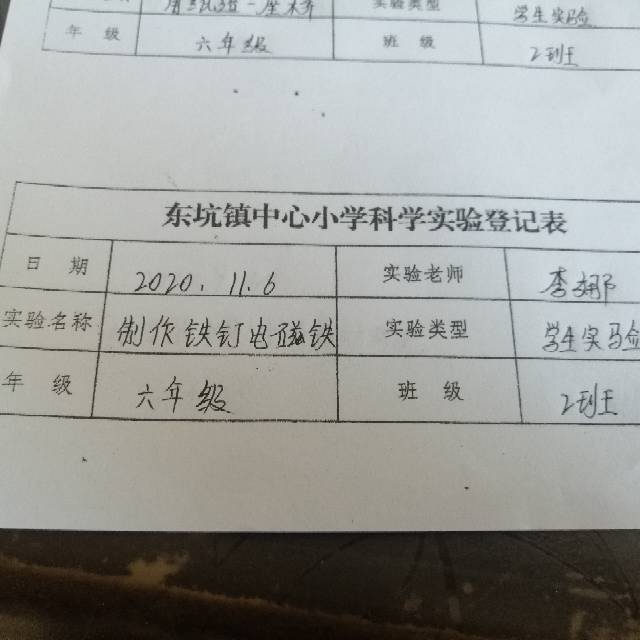 实验类型 学生实验
年 级 六年级 班 级 2班
东坑镇中心小学科学实验登记表
日 期 2020.11.6 实验老师 李娜
实验名称 制作铁钉电磁铁 实验类型 学生实验
年 级 六年级 班 级 2班